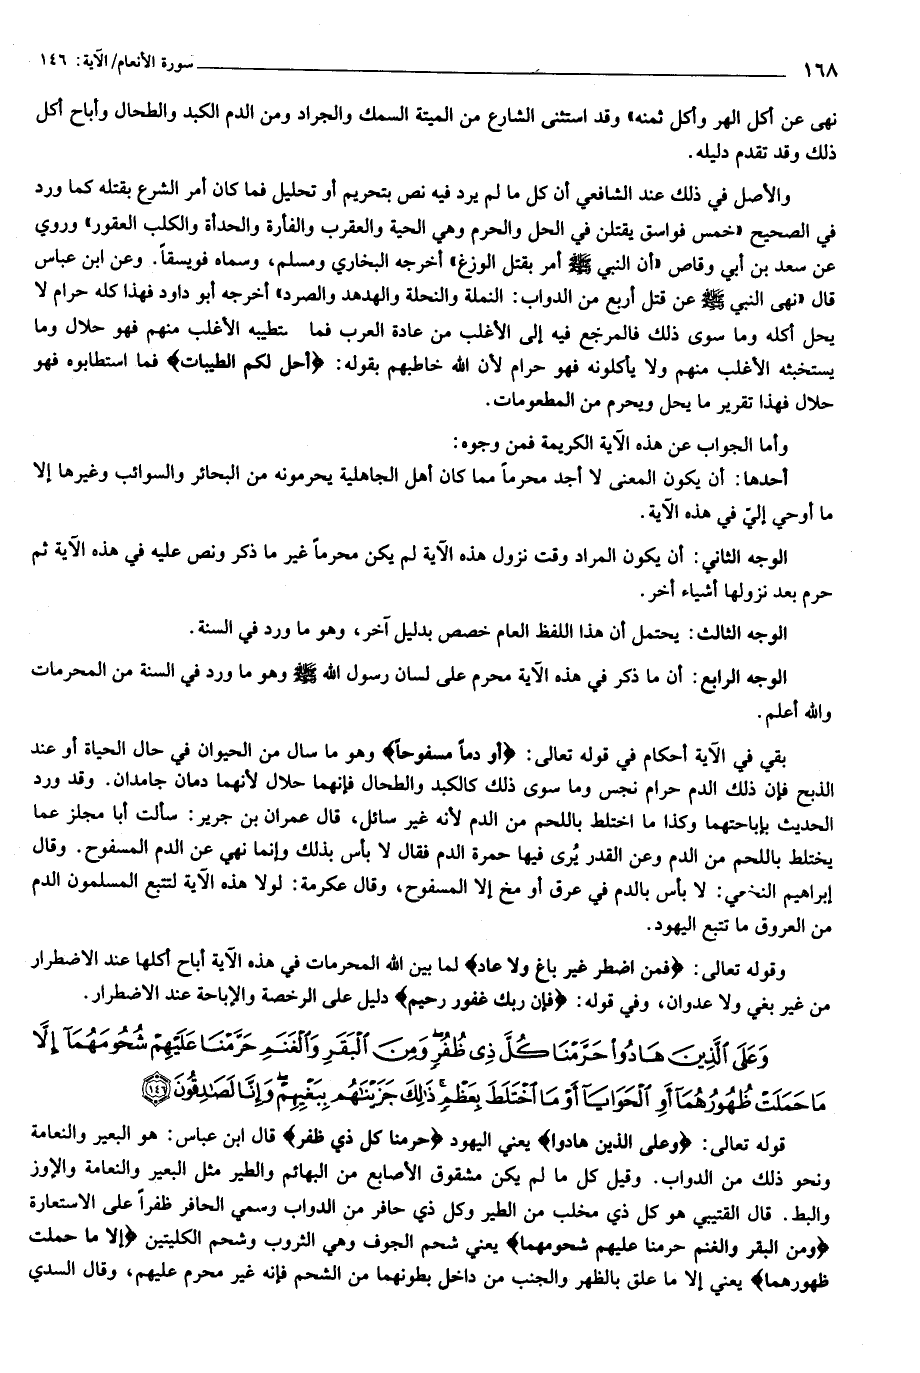 ١٦٨ سورة الأنعام/ الآية: ١٤٦
نهى عن أكل الهر وأكل ثمنه» وقد استثنى الشارع من الميتة السمك والجراد ومن الدم الكبد والطحال وأباح أكل
ذلك وقد تقدم دليله.
والأصل في ذلك عند الشافعي أن كل ما لم يرد فيه نص بتحريم أو تحليل فما كان أمر الشرع بقتله كما ورد
في الصحيح «خمس فواسق يقتلن في الحل والحرم وهي الحية والعقرب والفأرة والحدأة والكلب العقور» وروي
عن سعد بن أبي وقاص «أن النبي ﷺ أمر بقتل الوزغ» أخرجه البخاري ومسلم، وسماه فويسقاً. وعن ابن عباس
قال «نهى النبي ﷺ عن قتل أربع من الدواب: النملة والنحلة والهدهد والصرد» أخرجه أبو داود فهذا كله حرام لا
يحل أكله وما سوى ذلك فالمرجع فيه إلى الأغلب من عادة العرب فما الأغلب منهم فهو حلال وما
يستخبثه الأغلب منهم ولا يأكلونه فهو حرام لأن الله خاطبهم بقوله: ﴿أحل لكم الطيبات﴾ فما استطابوه فهو
حلال فهذا تقرير ما يحل ويحرم من المطعومات.
وأما الجواب عن هذه الآية الكريمة فمن وجوه:
أحدها: أن يكون المعنى لا أجد محرماً مما كان أهل الجاهلية يحرمونه من البحائر والسوائب وغيرها إلا
ما أوحي إليّ في هذه الآية.
الوجه الثاني: أن يكون المراد وقت نزول هذه الآية لم يكن محرماً غير ما ذكر ونص عليه في هذه الآية ثم
حرم بعد نزولها أشياء أخر.
الوجه الثالث: يحتمل أن هذا اللفظ العام خصص بدليل آخر، وهو ما ورد في السنة.
الوجه الرابع: أن ما ذكر في هذه الآية محرم على لسان رسول الله ﷺ وهو ما ورد في السنة من المحرمات
والله أعلم.
بقي في الآية أحكام في قوله تعالى: ﴿أو دماً مسفوحاً﴾ وهو ما سال من الحيوان في حال الحياة أو عند
الذبح فإن ذلك الدم حرام نجس وما سوى ذلك كالكبد والطحال فإنهما حلال لأنهما دمان جامدان. وقد ورد
الحديث بإباحتهما وكذا ما اختلط باللحم من الدم لأنه غير سائل، قال عمران بن جرير: سألت أبا مجلز عما
يختلط باللحم من الدم وعن القدر يُرى فيها حمرة الدم فقال لا بأس بذلك وإنما نهي عن الدم المسفوح. وقال
إبراهيم النخعي: لا بأس بالدم في عرق أو مخ إلا المسفوح، وقال عكرمة: لولا هذه الآية لتتبع المسلمون الدم
من العروق ما تتبع اليهود.
وقوله تعالى: ﴿فمن اضطر غير باغ ولا عاد﴾ لما بين الله المحرمات في هذه الآية أباح أكلها عند الاضطرار
من غير بغي ولا عدوان، وفي قوله: ﴿فإن ربك غفور رحيم﴾ دليل على الرخصة والإباحة عند الاضطرار.
وَعَلَى ٱلَّذِينَ هَادُوا۟ حَرَّمْنَا كُلَّ ذِى ظُفُرٍۖ وَمِنَ ٱلْبَقَرِ وَٱلْغَنَمِ حَرَّمْنَا عَلَيْهِمْ شُحُومَهُمَآ إِلَّا
مَا حَمَلَتْ ظُهُورُهُمَآ أَوِ ٱلْحَوَايَآ أَوْ مَا ٱخْتَلَطَ بِعَظْمٍۚ ذَٰلِكَ جَزَيْنَٰهُم بِبَغْيِهِمْۖ وَإِنَّا لَصَٰدِقُونَ ﴿١٤٦﴾
قوله تعالى: ﴿وعلى الذين هادوا﴾ يعني اليهود ﴿حرمنا كل ذي ظفر﴾ قال ابن عباس: هو البعير والنعامة
ونحو ذلك من الدواب. وقيل كل ما لم يكن مشقوق الأصابع من البهائم والطير مثل البعير والنعامة والإوز
والبط. قال القتيبي هو كل ذي مخلب من الطير وكل ذي حافر من الدواب وسمي الحافر ظفراً على الاستعارة
﴿ومن البقر والغنم حرمنا عليهم شحومهما﴾ يعني شحم الجوف وهي الثروب وشحم الكليتين ﴿إلا ما حملت
ظهورهما﴾ يعني إلا ما علق بالظهر والجنب من داخل بطونهما من الشحم فإنه غير محرم عليهم، وقال السدي